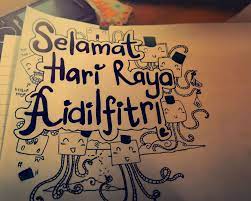 Selamat
Hari Raya
Aidilfitri